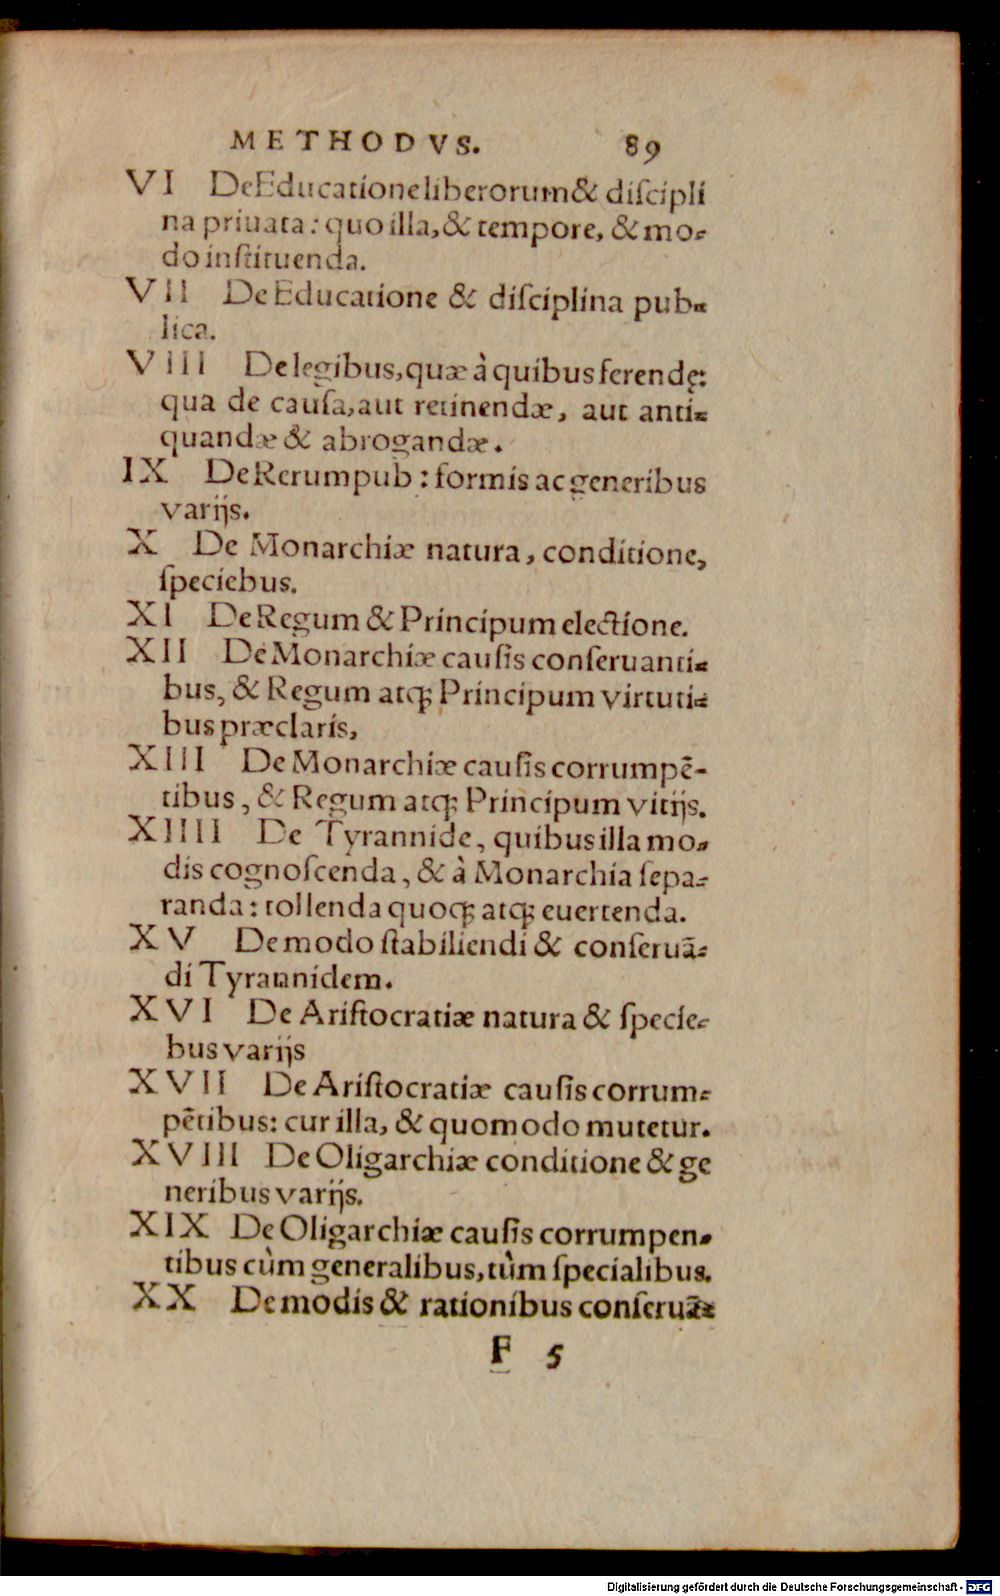 METHODVS. 89
VI De Educatione liberorum & diſcipli
na priuata: quo illa, & tempore, & mo-
do inſtituenda.
VII De Educatione & diſciplina pub-
lica.
VIII De legibus, quæ à quibus ferendę:
qua de cauſa, aut retinendæ, aut anti-
quandæ & abrogandæ.
IX De Rerumpub: formis ac generibus
varijs.
X De Monarchiæ natura, conditione,
ſpeciebus.
XI De Regum & Principum electione.
XII De Monarchiæ cauſis conſeruanti-
bus, & Regum atq; Principum virtuti-
bus præclaris,
XIII De Monarchiæ cauſis corrumpē-
tibus, & Regum atq; Principum vitijs.
XIIII De Tyrannide, quibus illa mo-
dis cognoſcenda, & à Monarchia ſepa-
randa: tollenda quoq; atq; euertenda.
XV De modo ſtabiliendi & conſeruā-
di Tyrannidem.
XVI De Ariſtocratiæ natura & ſpecie-
bus varijs
XVII De Ariſtocratiæ cauſis corrum-
pētibus: cur illa, & quomodo mutetur.
XVIII De Oligarchiæ conditione & ge
neribus varijs.
XIX De Oligarchiæ cauſis corrumpen-
tibus cùm generalibus, tùm ſpecialibus.
XX De modis & rationibus conſeruā-
F 5
Digitalisierung gefördert durch die Deutsche Forschungsgemeinschaft - DFG